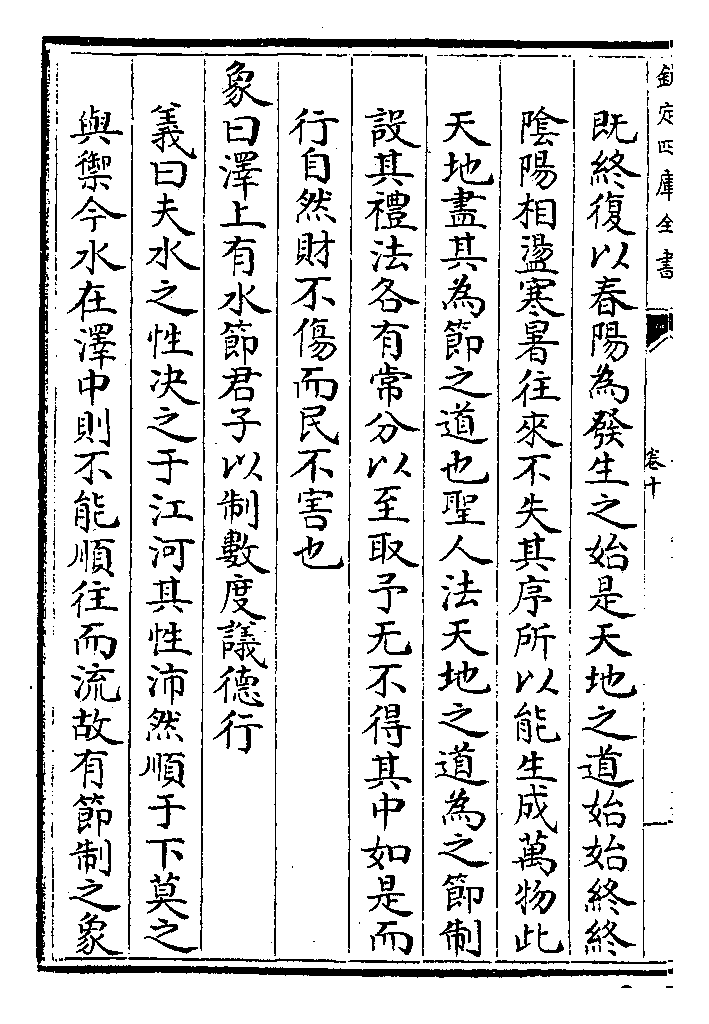 欽定四庫全書
卷十
既終復以春陽為發生之始是天地之道始始終終
陰陽相盪寒暑往來不失其序所以能生成萬物此
天地盡其為節之道也聖人法天地之道為之節制
設其禮法各有常分以至取予无不得其中如是而
行自然財不傷而民不害也
象曰澤上有水節君子以制數度議德行
義曰夫水之性决之于江河其性沛然順于下莫之
與禦今水在澤中則不能順往而流故有節制之象